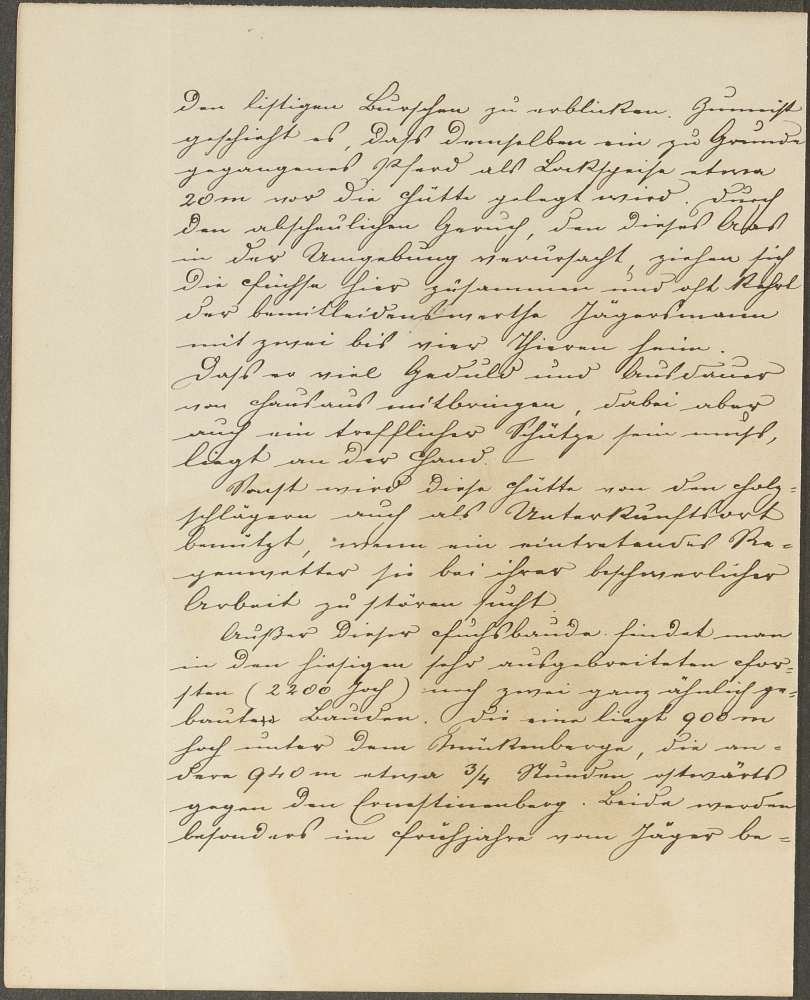 den listigen Burschen zu erblicken. Zumeist
geschieht es, daſs demselben ein zu Grunde
gegangenes Pferd als Lockspeise etwa
20 m vor die Hütte gelegt wird. Durch
den abscheulichen Geruch, den dieses Aas
in der Umgebung verursacht, ziehen sich
die Füchse hier zusammen und oft kehrt
der bemitleidenswerthe Jägersmann
mit zwei bis vier Thieren heim.
Daſs er viel Geduld und Ausdauer
von Hausaus mitbringen, dabei aber
auch ein trefflicher Schütze sein muſs,
liegt an der Hand. –
Sonst wird diese Hütte von den Holz=
schlägern auch als Unterkunftsort
benützt, wenn ein eintretendes Re=
genwetter sie bei ihrer beschwerlichen
Arbeit zu stören sucht.
Außer dieser Fuchsbaude findet man
in den hiesigen sehr ausgebreiteten For=
sten (2200 Joch) noch zwei ganz ähnlich ge=
baute Bauden. Die eine liegt 900 m
hoch unter dem Mückenberge, die an=
dere 940 m etwa 3/4 Stunden ostwärts
gegen den Ernestinenberg. Beide werden
besonders im Frühjahre vom Jäger be=